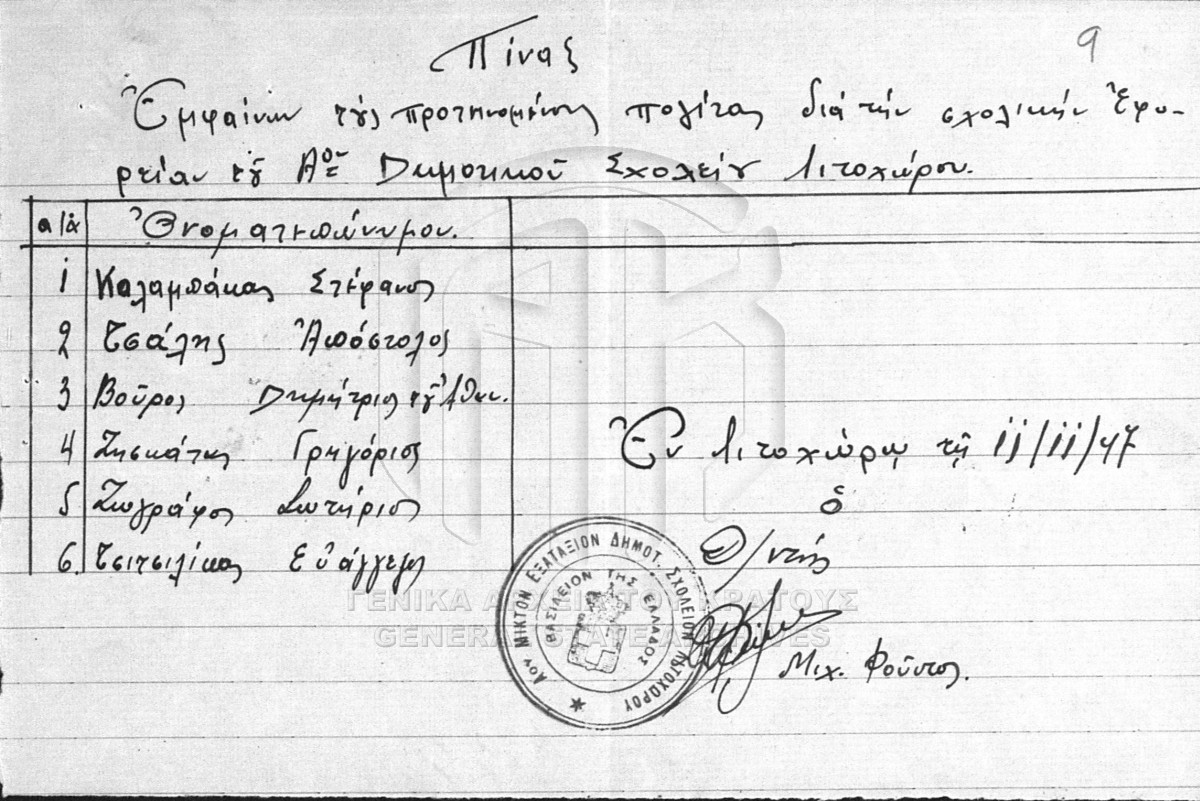 9
Πίναξ
Ἐμφαίνων τούς προτεινομένους πολίτας διά τήν σχολικήν Ἐφο-
ρείαν τοῦ Αου Δημοτικοῦ Σχολείου Λιτοχώρου.
α/α Ὀνοματεπώνυμον.
1 Καλαμπάκας Στέφανος
2 Τσάλης Ἀπόστολος
3 Βοῦρος Δημήτριος τοῦ Ἀθαν.
4 Ζησκάτας Γρηγόριος
5 Ζωγράφος Σωτήριος
6. Τσιτσιλίκας Εὐάγγελος
Ἐν Λιτοχώρῳ τῇ 11/11/47
ὁ
Δ/ντής
Μιχ. Φοῦντος.
Αον ΜΙΚΤΟΝ ΕΞΑΤΑΞΙΟΝ ΔΗΜΟΤ. ΣΧΟΛΕΙΟΝ ΛΙΤΟΧΩΡΟΥ
ΒΑΣΙΛΕΙΟΝ ΤΗΣ ΕΛΛΑΔΟΣ
ΓΕΝΙΚΑ ΑΡΧΕΙΑ ΤΟΥ ΚΡΑΤΟΥΣ
GENERAL STATE ARCHIVES